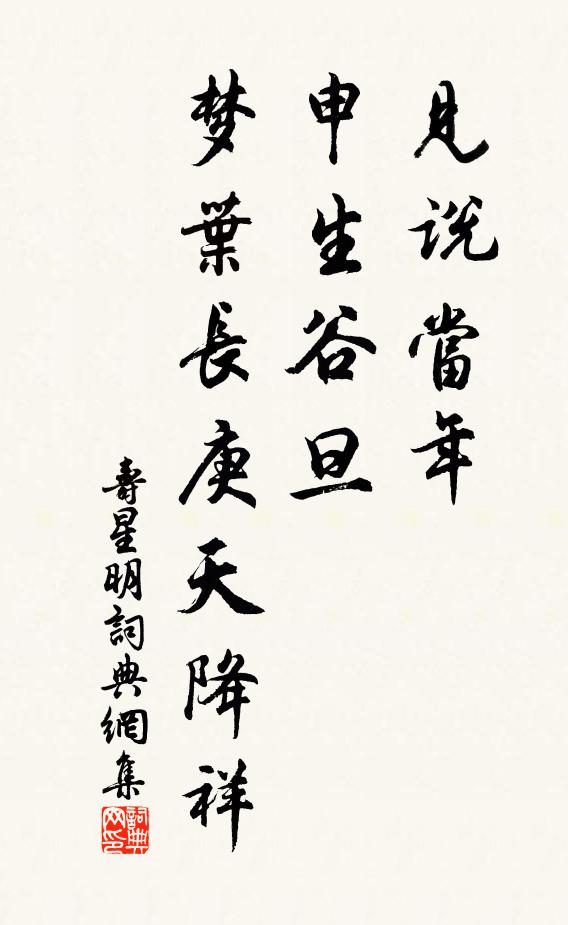 見説當年
申生谷旦
梦葉長庚天降祥
壽星明詞典網集
詞典
网印